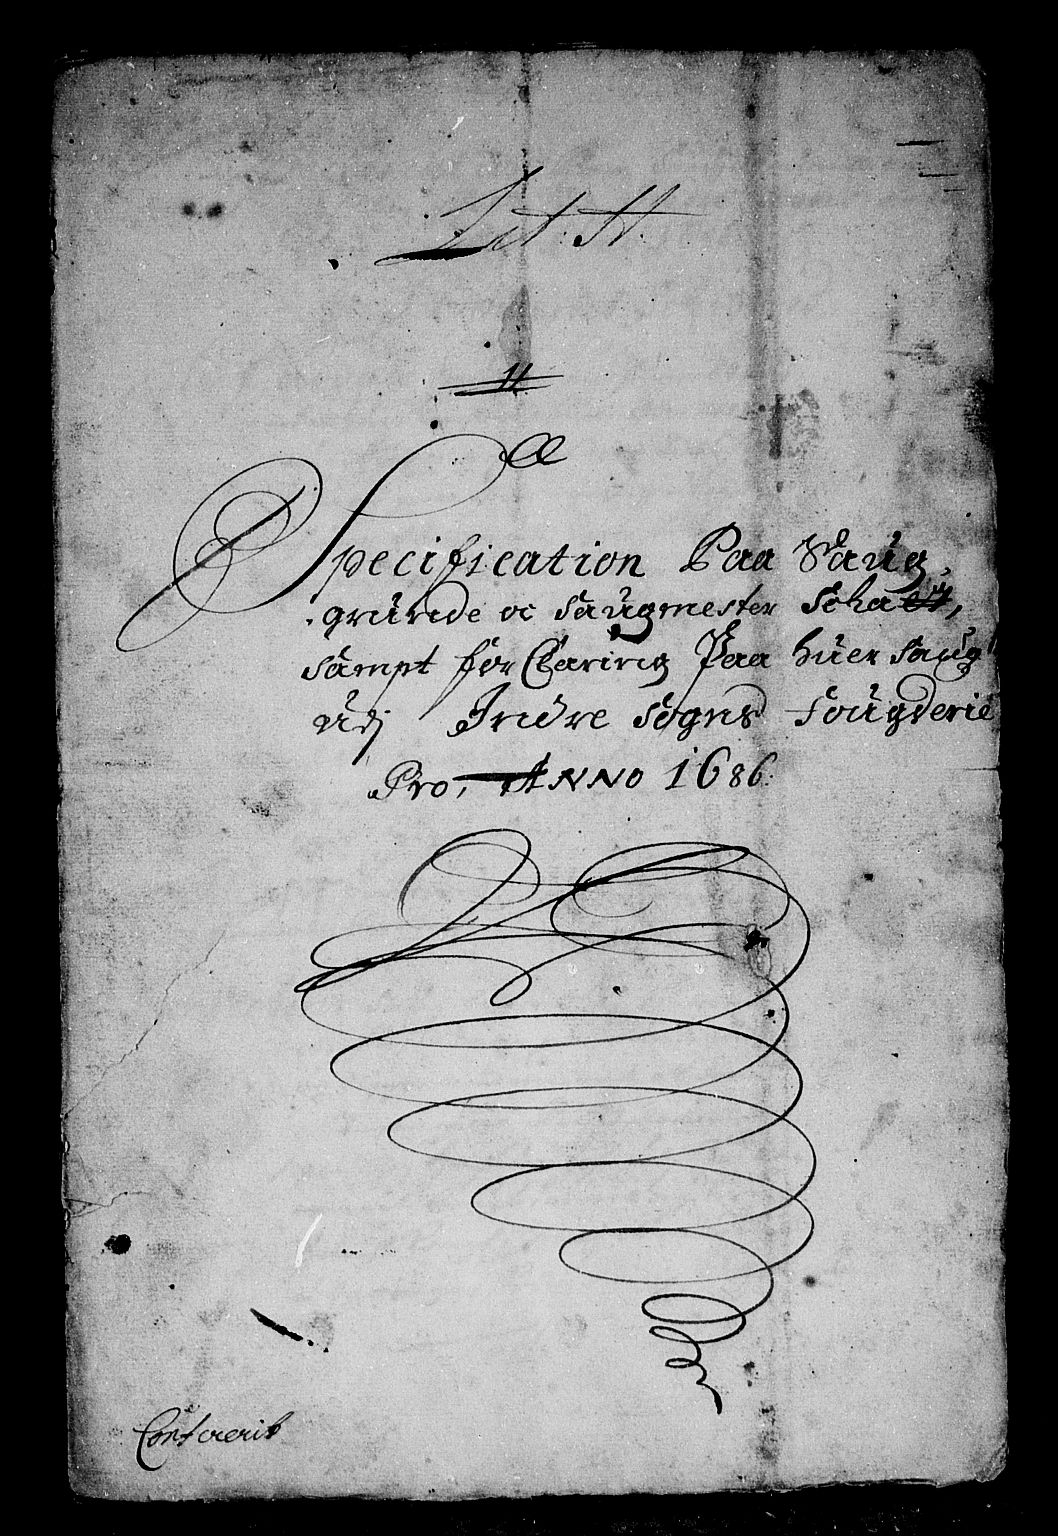 Lit: H.
11
Specification Paa Saug,
grunde oc Saugmester Schatt,
sampt for Skaring Paa huer Saug
udj Indre Sogns Fougderie
Pro, Anno 1686.